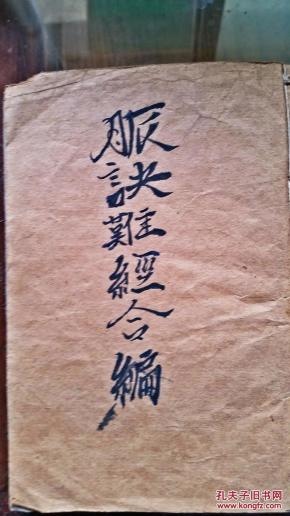 脈訣難經合編
孔夫子旧书网
www.kongfz.com